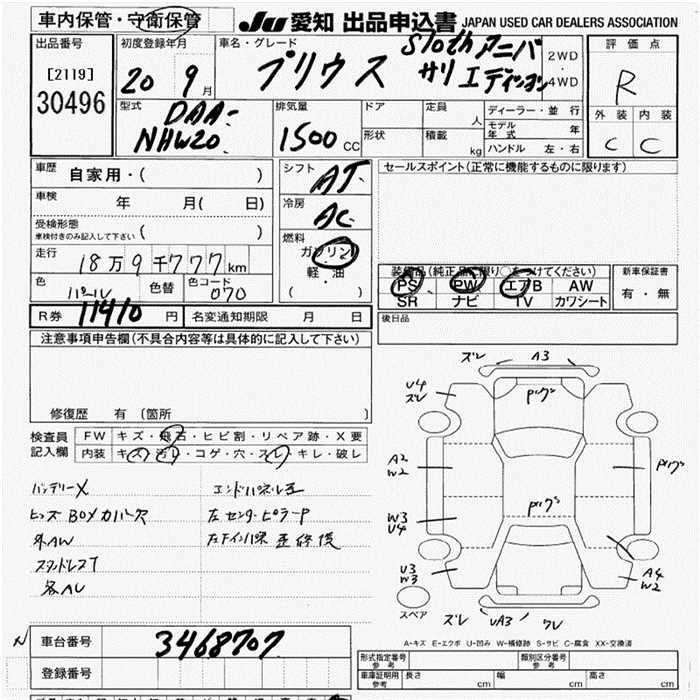 車内保管・守衛保管
JU 愛知 出品申込書 JAPAN USED CAR DEALERS ASSOCIATION
出品番号
[2119]
30496
初度登録年月
20 年 9 月
車名・グレード
プリウス S10thアニバ
サリエディション
2WD
・
4WD
評価点
R
外装 内装
C C
型式
DAA-
NHW20
排気量
1500 CC
ドア
形状
定員
人
積載
kg
ディーラー・並行
モデル
年式
年
ハンドル 左・右
車歴
自家用・( )
車検
年 月( 日)
受検形態
車検付きのみ記入して下さい
( )
走行
18万9千777km
色
パール
色替
色コード
070
シフト
AT
冷房
AC
燃料
ガソリン
軽・油
( )
セールスポイント(正常に機能するものに限ります)
装備品(純正品に限り○をつけてください)
PS PW エアB AW
SR ナビ TV カワシート
新車保証書
有・無
R券 11410 円
名変通知期限 月 日
後日品
注意事項申告欄(不具合内容等は具体的に記入して下さい)
修復歴 有 〔箇所 〕
検査員
記入欄
FW キズ・飛石・ヒビ割・リペア跡・X要
内装 キズ・汚レ・コゲ・穴・スレ・キレ・破レ
バッテリーX
エンドパネル歪
BOXカバー欠
左センターピラーP
外AW
スタッドレスT
各AU
ズレ A3
U4
ズレ
prg's
A2
W2
prg's
prg's
W3
U4
U3
W3
A4
W2
スペア
ズレ UA3 ワレ
A-キズ E-エクボ U-凹み W-補修跡 S-サビ C-腐食 XX-交換済
車台番号
3468707
登録番号
形式指定番号
参考
類別区分番号
参考
車庫証明用
参考
長さ cm 幅 cm 高さ cm